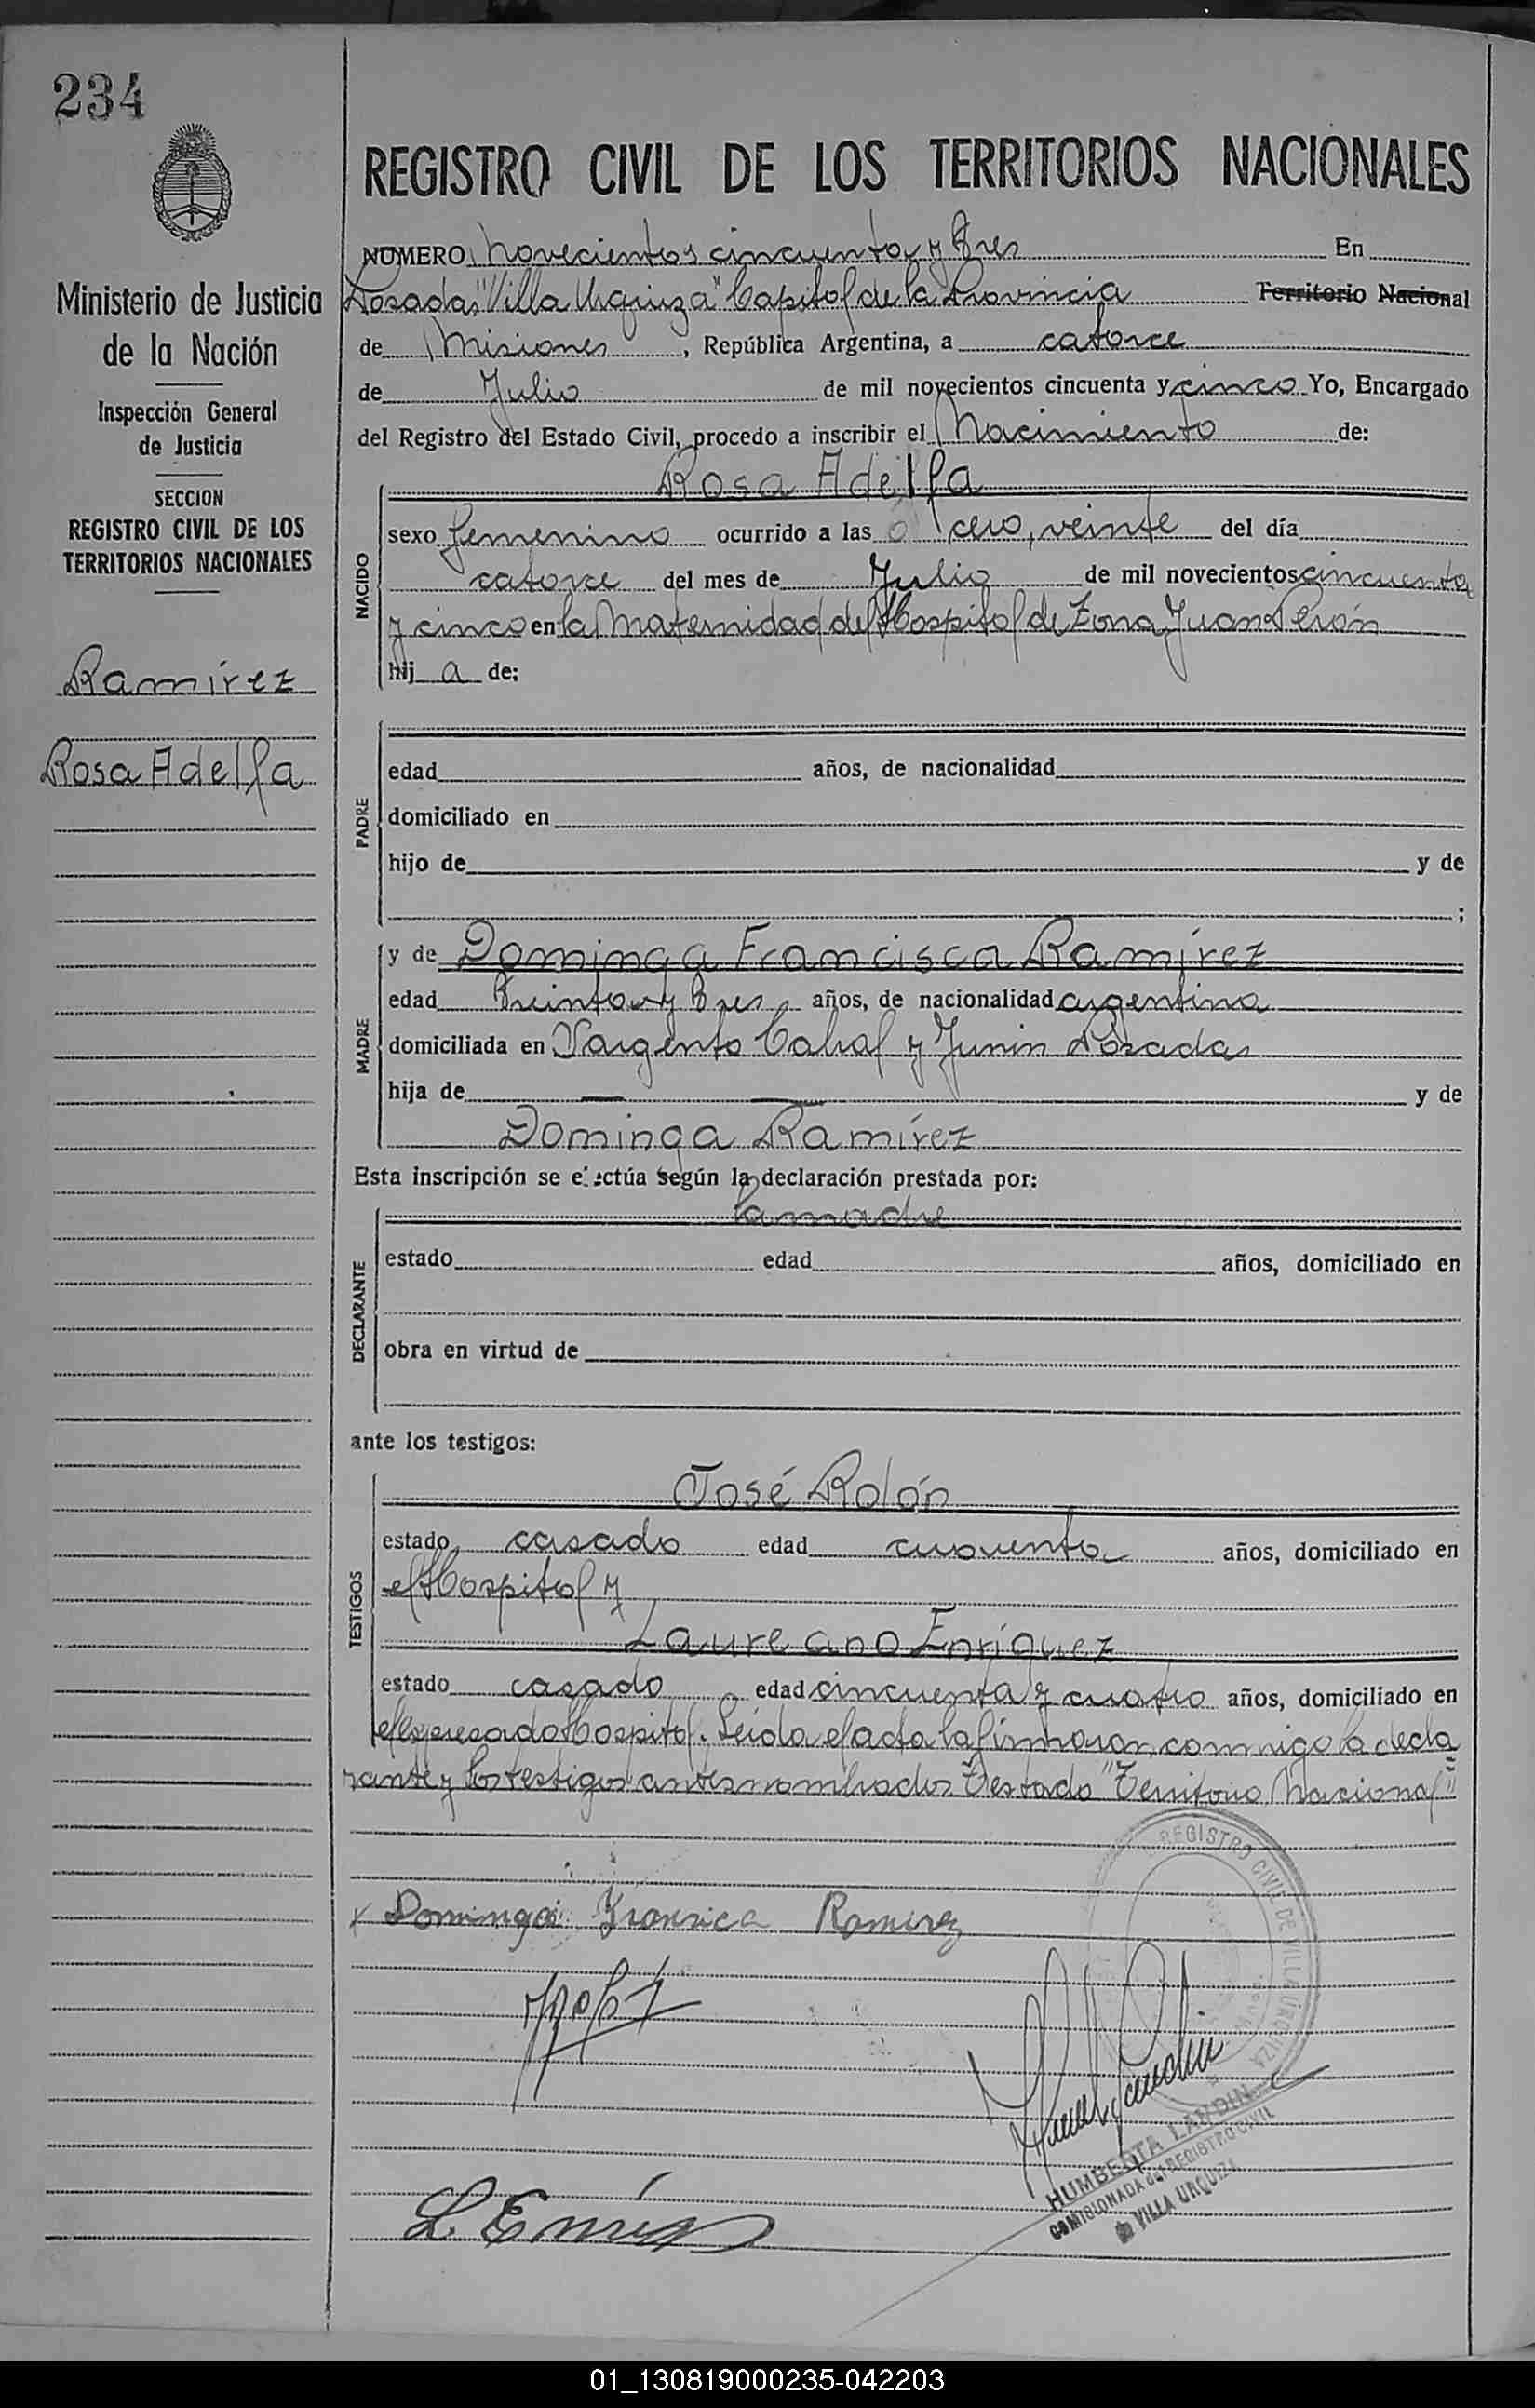 234
Ministerio de Justicia
de la Nación
Inspección General
de Justicia
SECCION
REGISTRO CIVIL DE LOS
TERRITORIOS NACIONALES
Ramírez
Rosa Adelfa
REGISTRO CIVIL DE LOS TERRITORIOS NACIONALES
NUMERO Novecientos cincuenta y tres En
Posadas "Villa Urquiza" Capital de la Provincia Territorio Nacional
de Misiones, República Argentina, a catorce
de Julio de mil novecientos cincuenta y cinco Yo, Encargado
del Registro del Estado Civil, procedo a inscribir el Nacimiento de:
Rosa Adelfa
NACIDO
sexo femenino ocurrido a las cero, veinte del día
catorce del mes de Julio de mil novecientos cincuenta
y cinco en la Maternidad del Hospital de Zona Juan Perón
hij a de:
PADRE
edad años, de nacionalidad
domiciliado en
hijo de y de
;
MADRE
y de Dominga Francisca Ramírez
edad treinta y tres años, de nacionalidad argentina
domiciliada en Sargento Cabral y Junin Posadas
hija de — — y de
Dominga Ramírez
Esta inscripción se efectúa según la declaración prestada por:
la madre
DECLARANTE
estado edad años, domiciliado en
obra en virtud de
ante los testigos:
TESTIGOS
José Rolón
estado casado edad cuarenta años, domiciliado en
el Hospital y
Laureano Enriquez
estado casado edad cincuenta y cuatro años, domiciliado en
el expresado Hospital. Leida el acta la firmaron conmigo la decla
rante y los testigos antes nombrados Testado "Territorio Nacional"
x Dominga Fransica Ramirez
L Enriq
REGISTRO CIVIL DE VILLA URQUIZA
HUMBERTA LANDIN
COMISIONADA del REGISTRO CIVIL
de VILLA URQUIZA
01_130819000235-042203